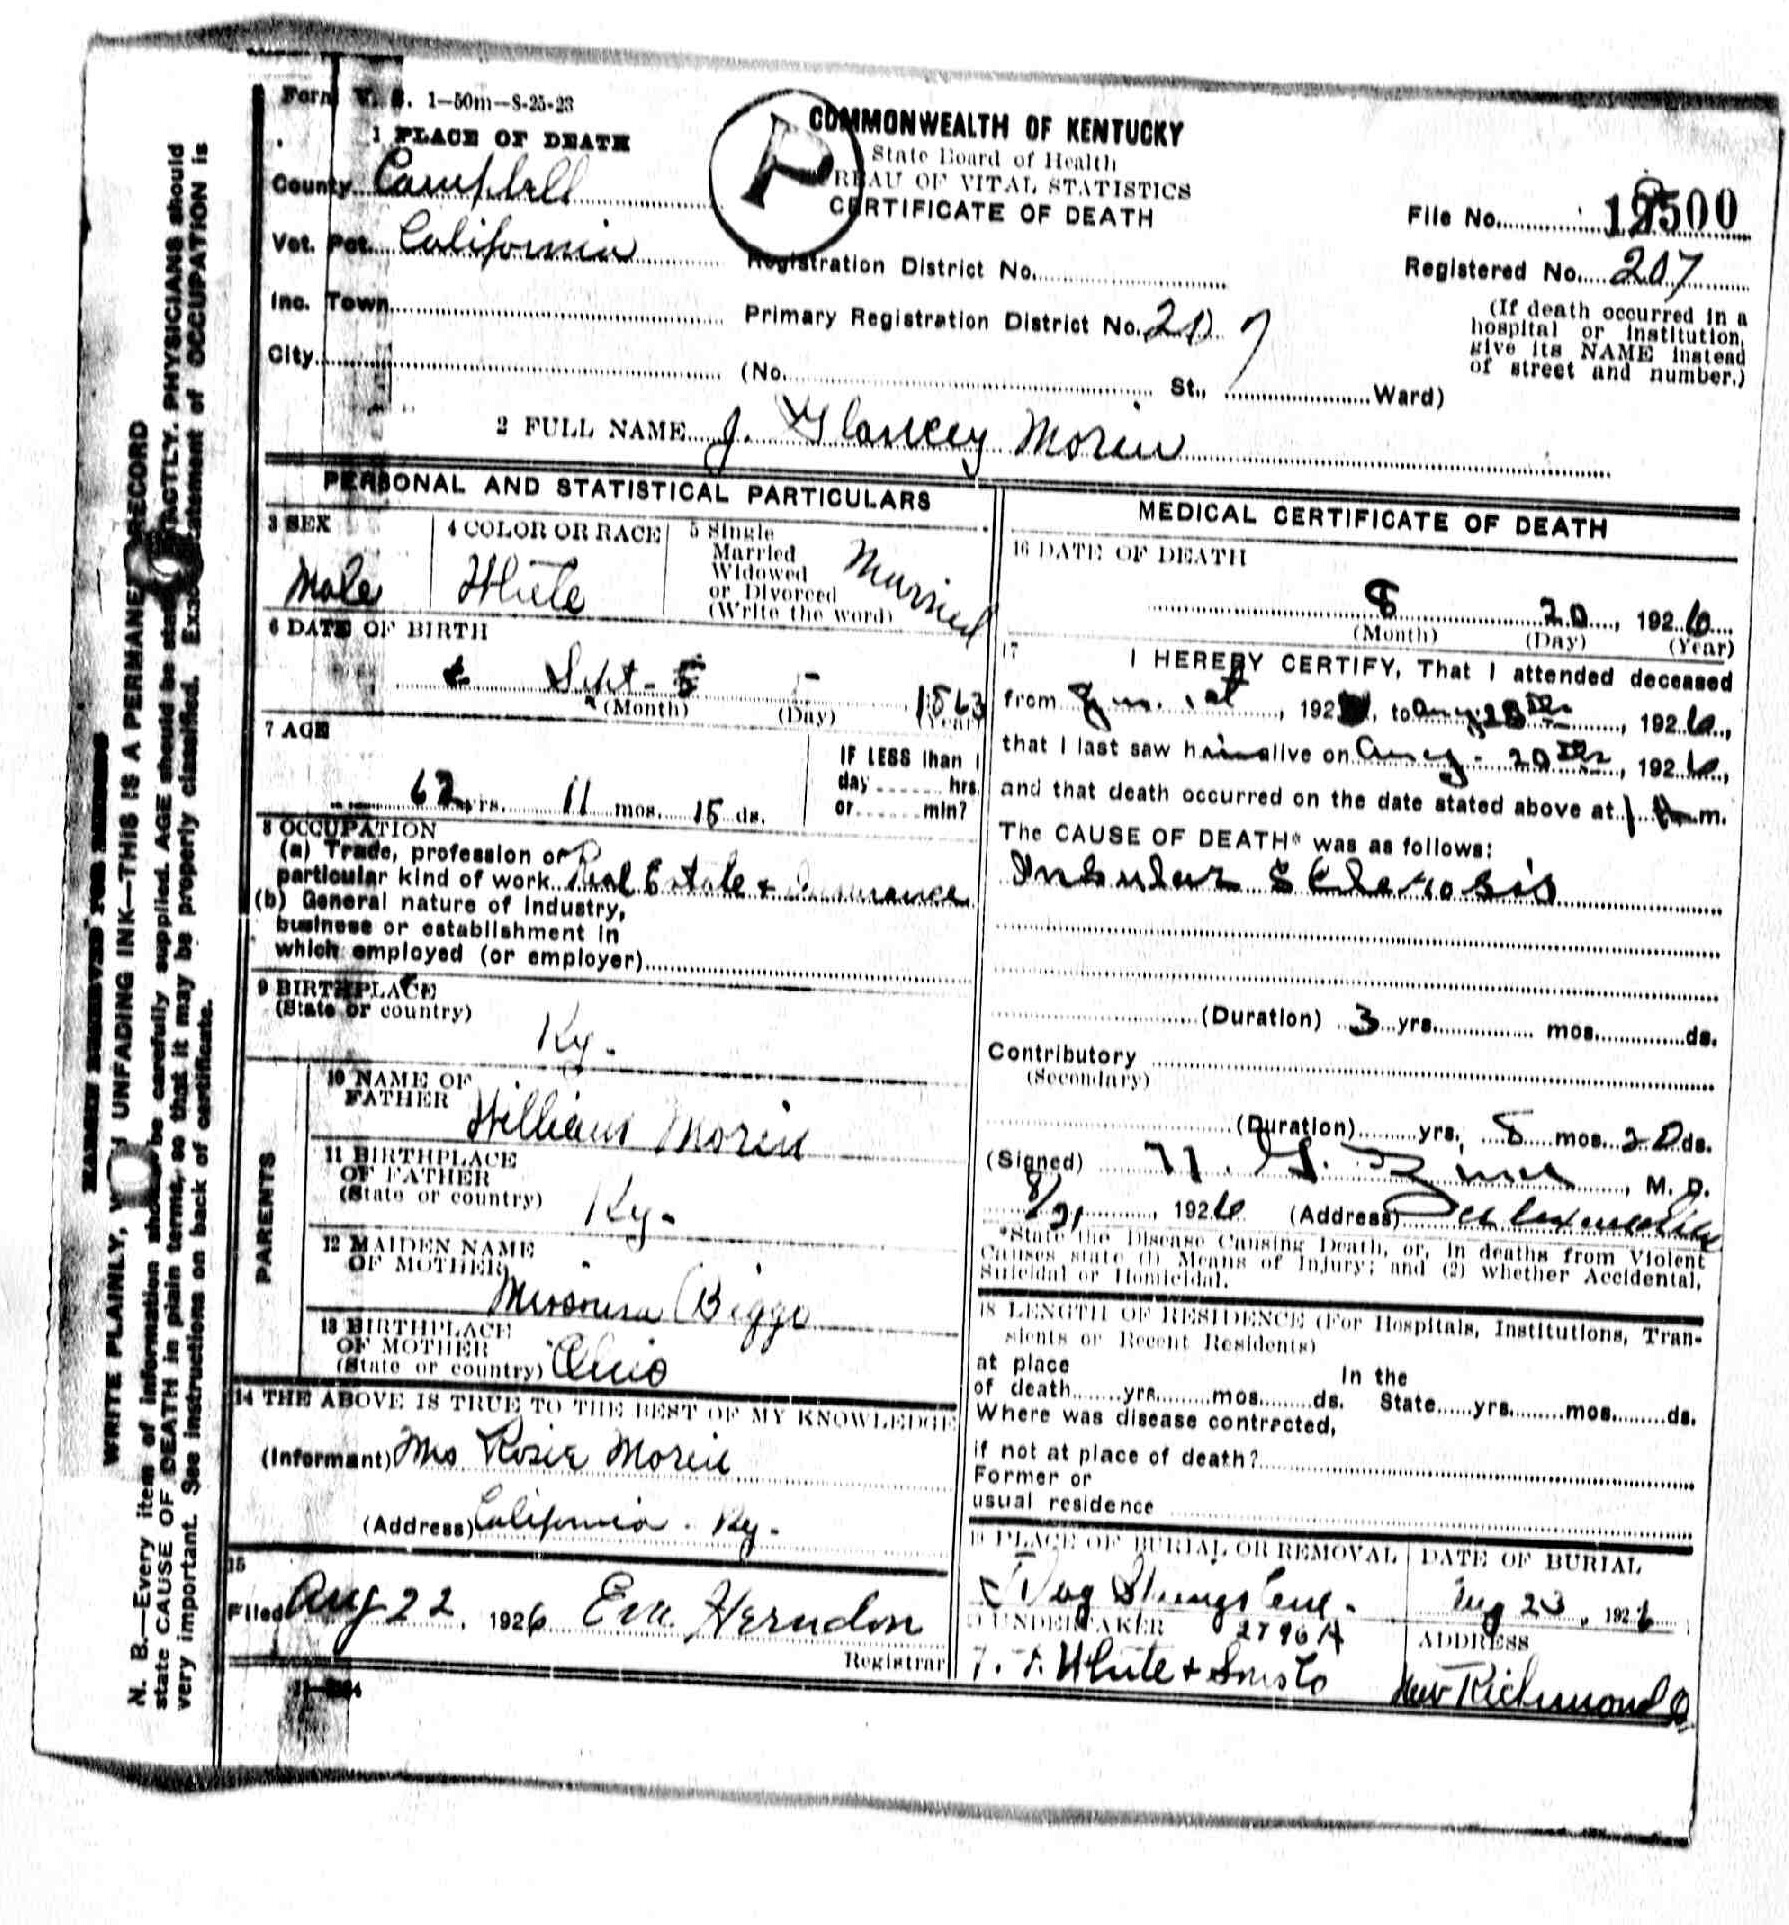 Form V. S. 1—50m—8-25-23
1 PLACE OF DEATH
COMMONWEALTH OF KENTUCKY
State Board of Health
REAU OF VITAL STATISTICS
CERTIFICATE OF DEATH
County Campbell
Vot. Pct. California
File No. 500
Registration District No.
Registered No. 207
Inc. Town
Primary Registration District No. 207
(If death occurred in a
hospital or institution,
give its NAME instead
of street and number.)
City
(No. St., Ward)
2 FULL NAME J. Glancey Morin
PERSONAL AND STATISTICAL PARTICULARS
3 SEX
Male
4 COLOR OR RACE
White
5 Single
Married
Widowed
or Divorced
(Write the word)
Married
6 DATE OF BIRTH
Sept - 5 - 1863
(Month) (Day) (Year)
7 AGE
62 yrs. 11 mos. 15 ds.
IF LESS than 1
day hrs.
or min?
8 OCCUPATION
(a) Trade, profession or
particular kind of work Real Estate & Insurance
(b) General nature of industry,
business or establishment in
which employed (or employer)
9 BIRTHPLACE
(State or country)
Ky.
PARENTS
10 NAME OF
FATHER
William Morin
11 BIRTHPLACE
OF FATHER
(State or country)
Ky.
12 MAIDEN NAME
OF MOTHER
Biggs
13 BIRTHPLACE
OF MOTHER
(State or country) Ohio
14 THE ABOVE IS TRUE TO THE BEST OF MY KNOWLEDGE
(Informant) Mrs Rosie Morin
(Address) California - Ky -
15
Filed Aug 22, 1926 Eva Herndon
Registrar
MEDICAL CERTIFICATE OF DEATH
16 DATE OF DEATH
8 20, 1926
(Month) (Day) (Year)
17 I HEREBY CERTIFY, That I attended deceased
from , 192 , to Aug , 1926,
that I last saw him alive on Aug - 20th, 1926,
and that death occurred on the date stated above at 1 m.
The CAUSE OF DEATH* was as follows:
Insular Sclerosis
(Duration) 3 yrs. mos. ds.
Contributory
(Secondary)
(Duration) yrs. 8 mos. 20 ds.
(Signed) , M. D.
8/21, 1926 (Address)
*State the Disease Causing Death, or, in deaths from Violent
Causes state (1) Means of Injury; and (2) whether Accidental,
Suicidal or Homicidal.
18 LENGTH OF RESIDENCE (For Hospitals, Institutions, Tran-
sients or Recent Residents)
at place In the
of death yrs. mos. ds. State yrs. mos. ds.
Where was disease contracted,
if not at place of death?
Former or
usual residence
19 PLACE OF BURIAL OR REMOVAL
DATE OF BURIAL
Springs Cem.
Aug 23, 1926
UNDERTAKER 2790A
ADDRESS
White & Sons Co
New Richmond O
MARGIN RESERVED FOR BINDING
WRITE PLAINLY, UNFADING INK—THIS IS A PERMANENT RECORD
N. B.—Every item of information should be carefully supplied. AGE should be stated EXACTLY. PHYSICIANS should
state CAUSE OF DEATH in plain terms, so that it may be properly classified. Exact statement of OCCUPATION is
very important. See instructions on back of certificate.